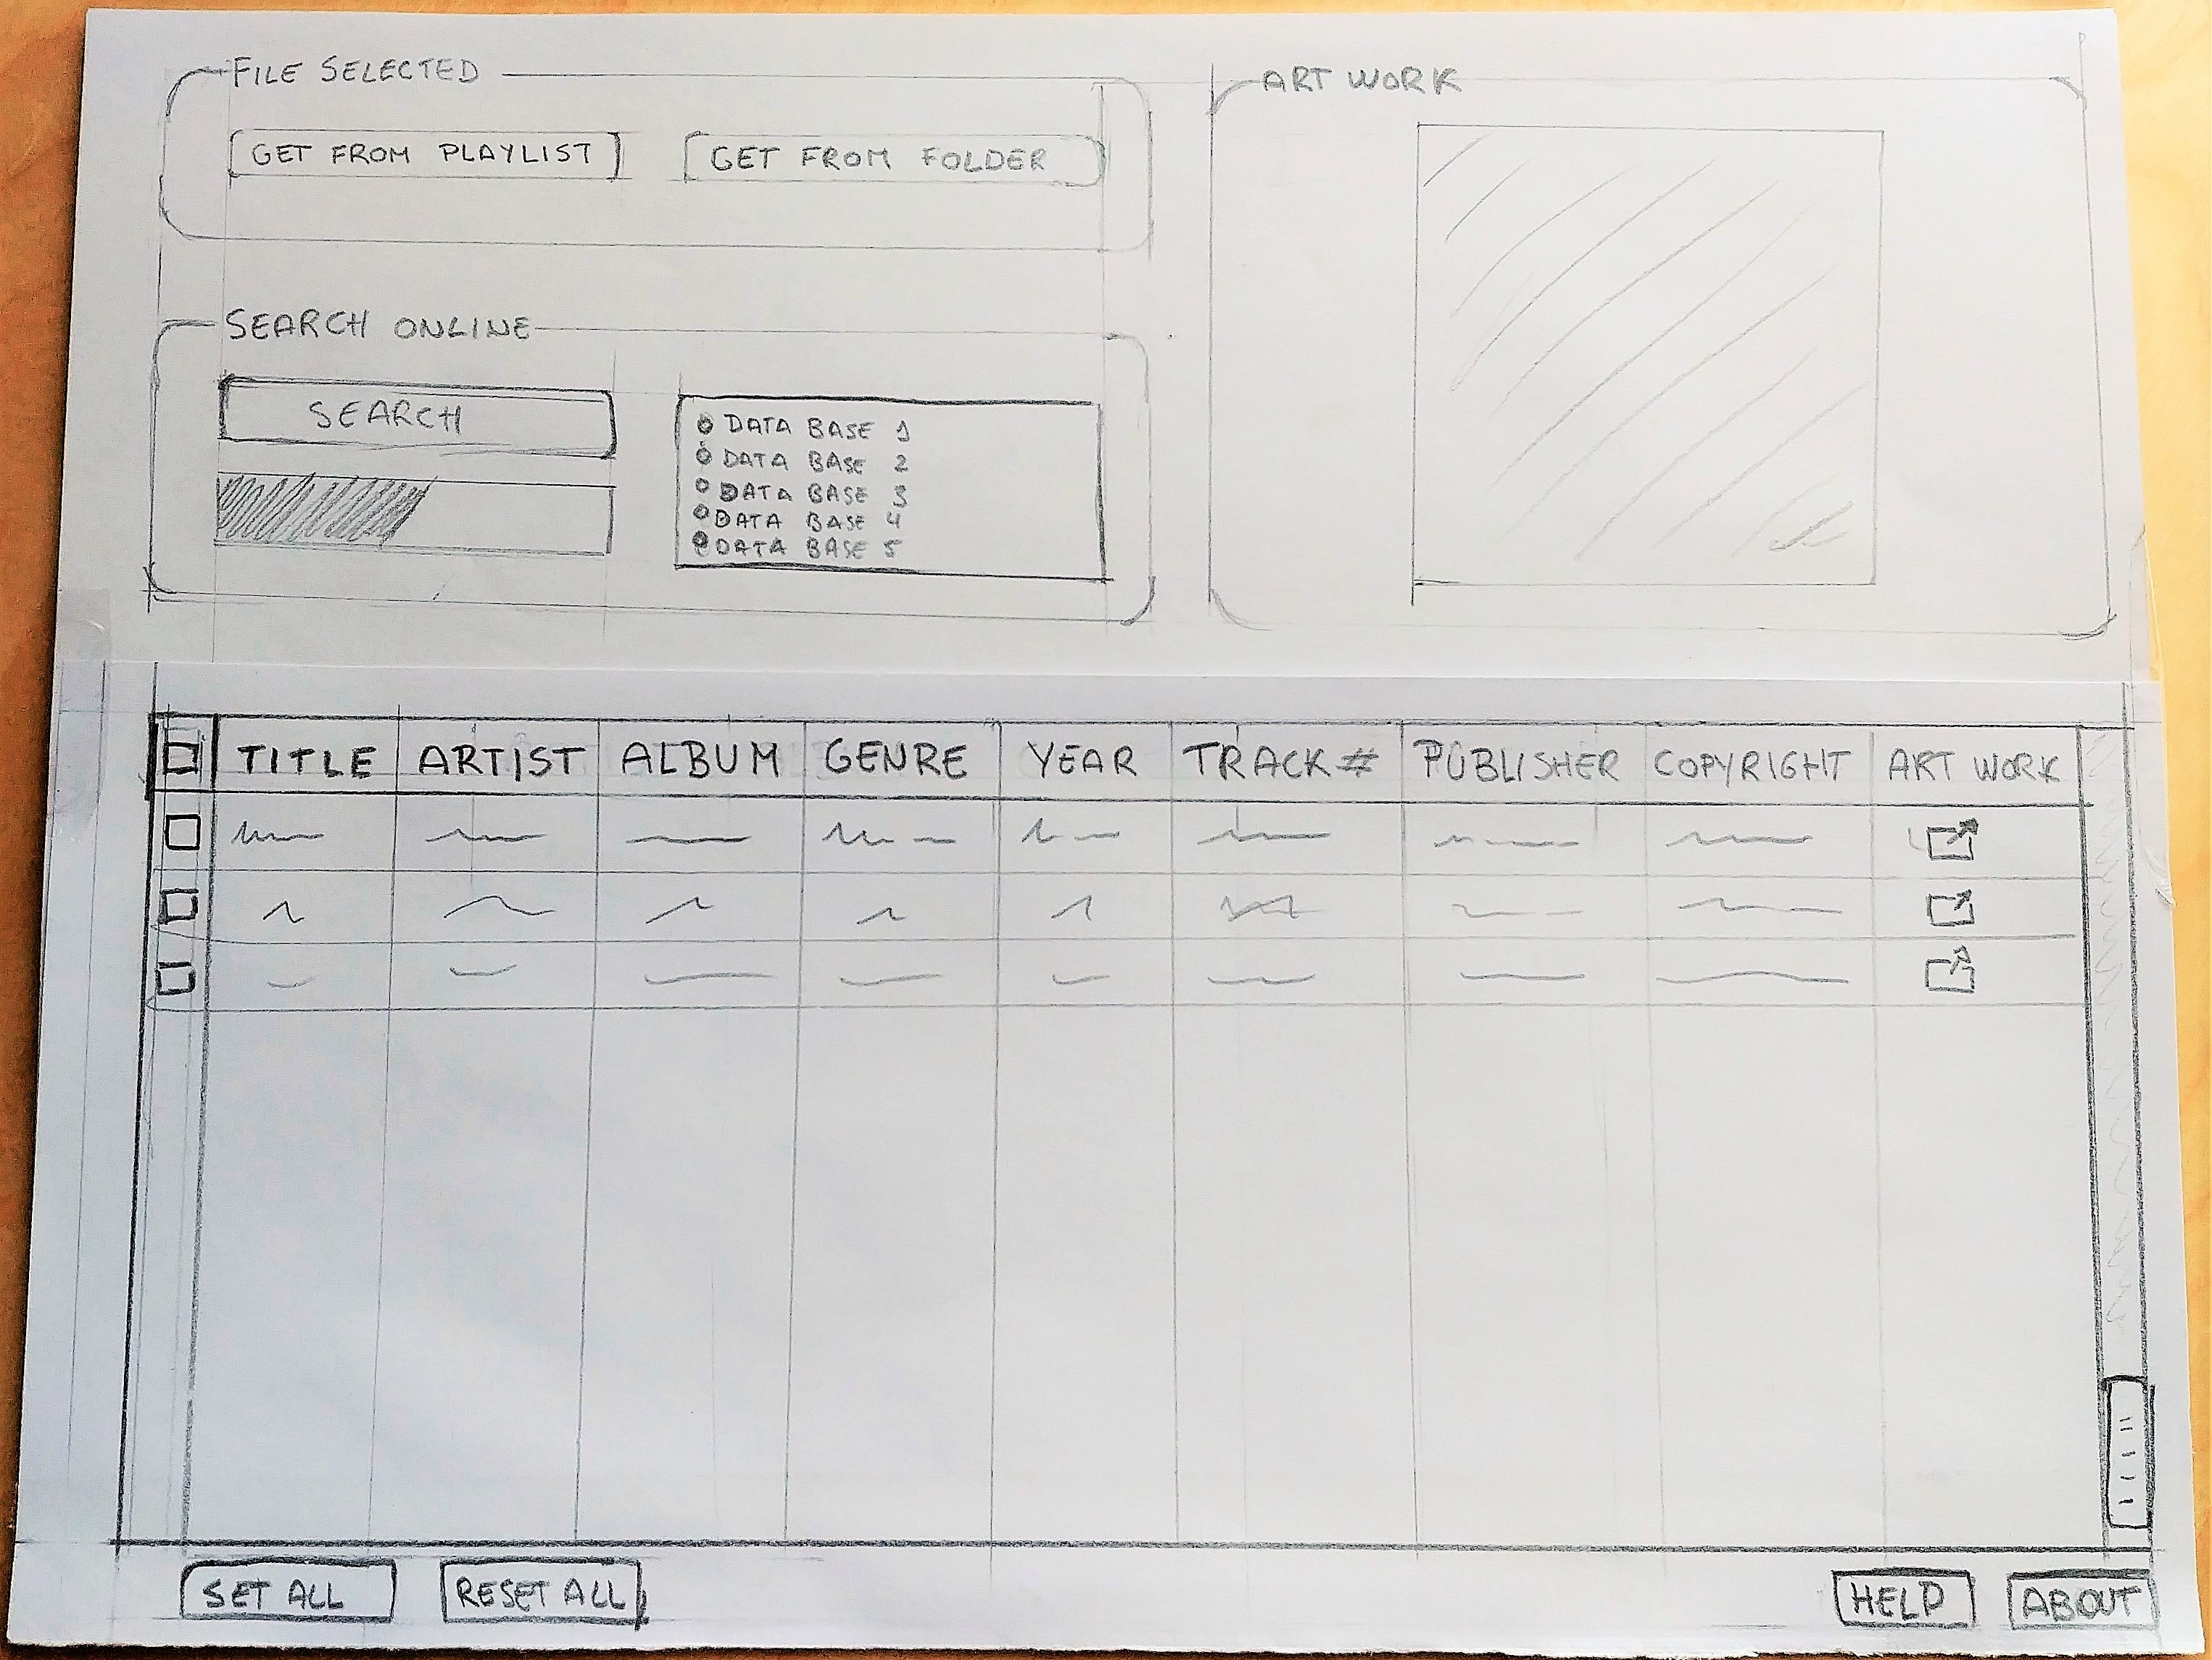 FILE SELECTED
GET FROM PLAYLIST
GET FROM FOLDER
ART WORK
SEARCH ONLINE
SEARCH
DATA BASE 1
DATA BASE 2
DATA BASE 3
DATA BASE 4
DATA BASE 5
TITLE ARTIST ALBUM GENRE YEAR TRACK# PUBLISHER COPYRIGHT ART WORK
SET ALL RESET ALL HELP ABOUT